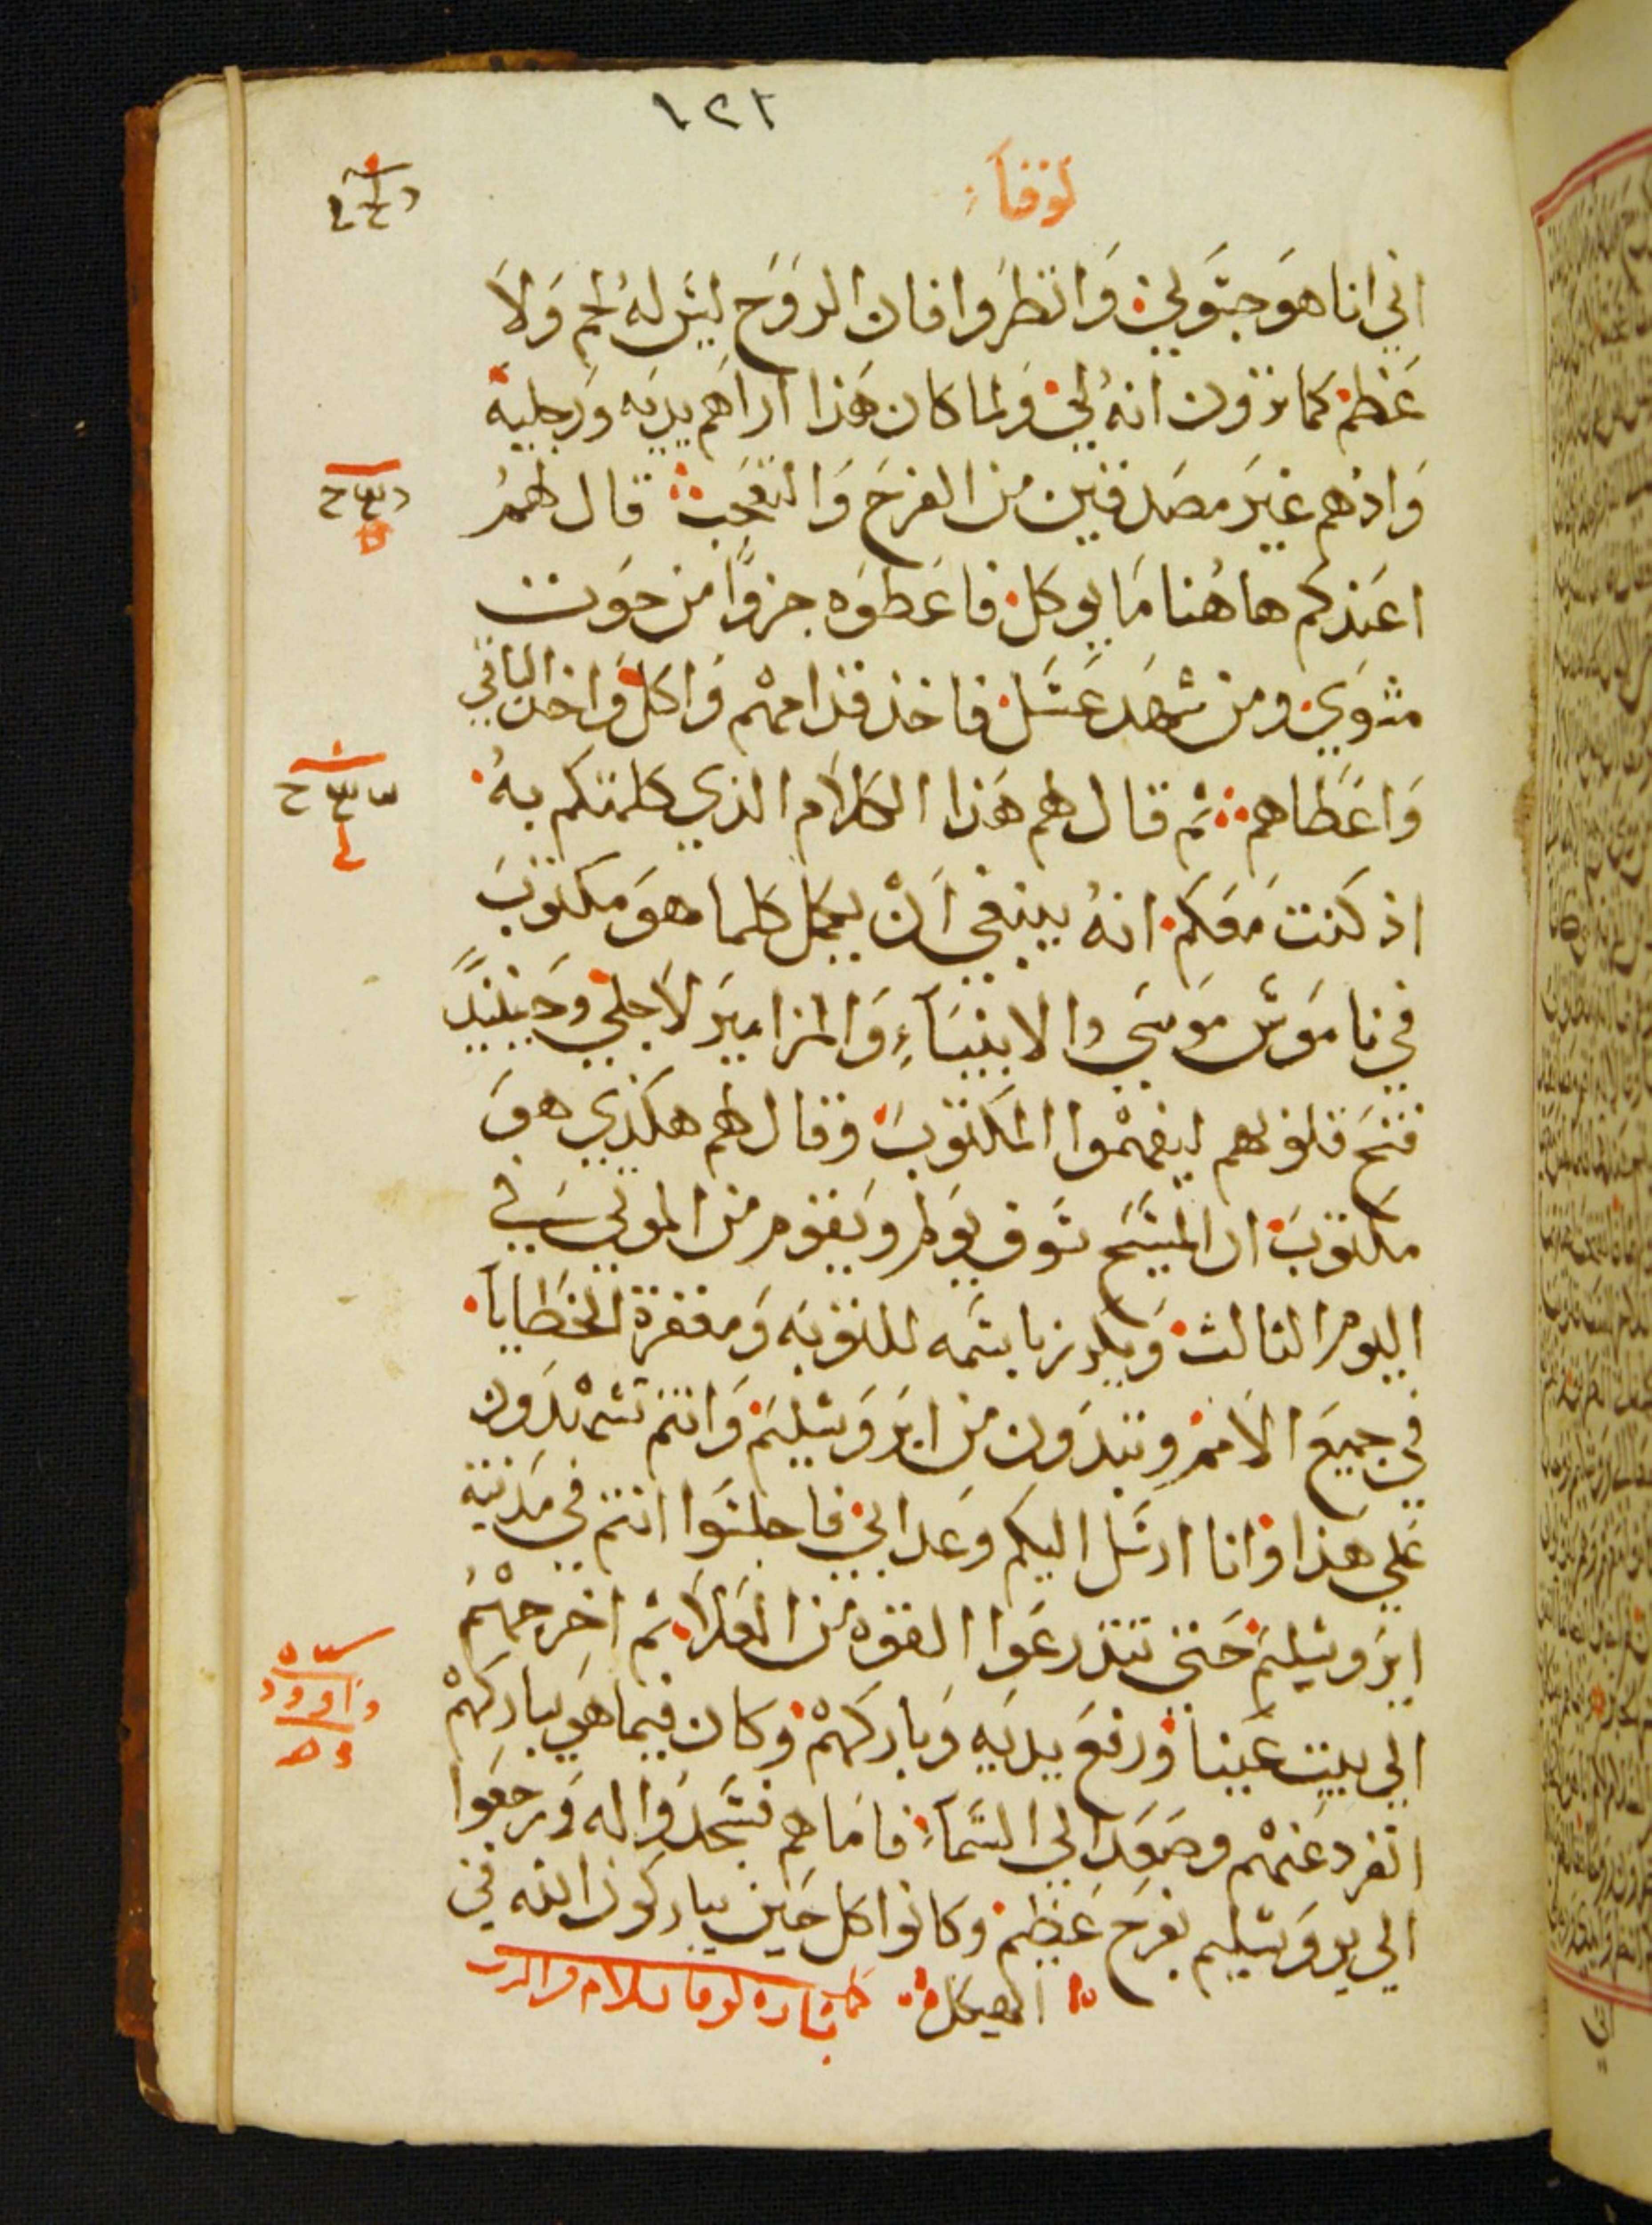 ١٢١
لوقا
اني انا هو جسوني وانظروا فان الروح ليس له لحم ولا
عظم كما ترون انه لي ولما كان هذا اراهم يديه ورجليه
واذ هم غير مصدقين من الفرح والتعجب قال لهم
اعندكم هاهنا ما يوكل فاعطوه جزوًا من حوت
مشوي ومن شهد عسل فاخذ قدامهم واكل واخذ الباقي
واعطاهم ثم قال لهم هذا الكلام الذي كلمتكم به
اذ كنت معكم انه ينبغي ان يكمل كلما هو مكتوب
في ناموس موسي والانبياء والمزامير لاجلي وحينيدً
فتح قلوبهم ليفهموا المكتوب وقال لهم هكذي هو
مكتوب ان المسيح سوف يولم ويقوم من الموتي في
اليوم الثالث ويكرز باسمه للتوبه ومغفرة الخطايا
في جميع الامم وتبدون من ايروشليم وانتم تشهدون
علي هذا وانا ارسل اليكم وعد ابي فاجلسوا انتم في مدينة
ايروشليم حتي تتدرعوا القوه من العلا ثم اخرجهم
الي بيت عنيا ورفع يديه وباركهم وكان فيما هو يباركهم
انفرد عنهم وصعد الي السماء فاما هم فسجدوا له ورجعوا
الي يروشليم بفرح عظيم وكانوا كل حين يباركون الله في
الهيكل كملت بشارة لوقا بسلام والرب